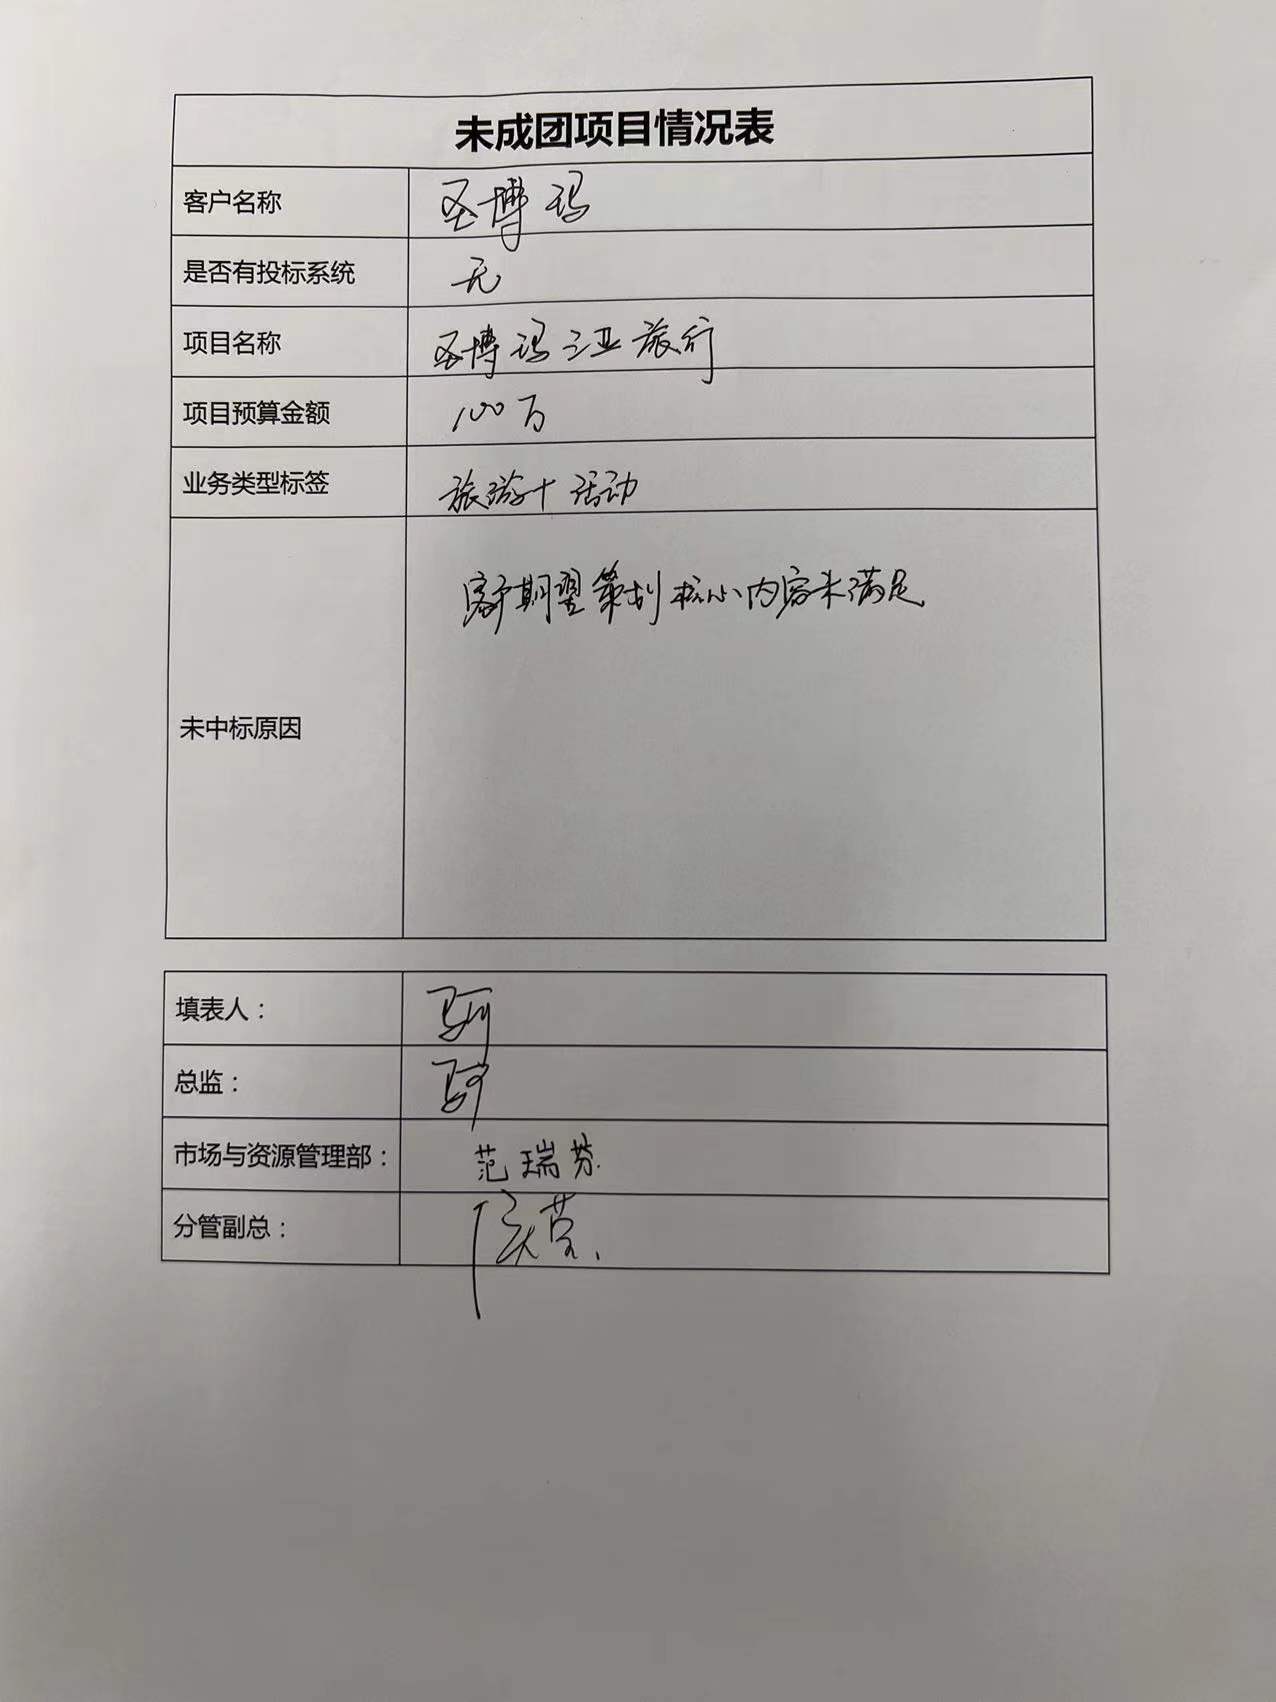 未成团项目情况表
客户名称 圣博玛
是否有投标系统 无
项目名称 圣博玛三亚旅行
项目预算金额 100万
业务类型标签 旅游+活动
客户期望策划核心内容未满足
未中标原因
填表人：
总监：
市场与资源管理部： 范瑞芬
分管副总：